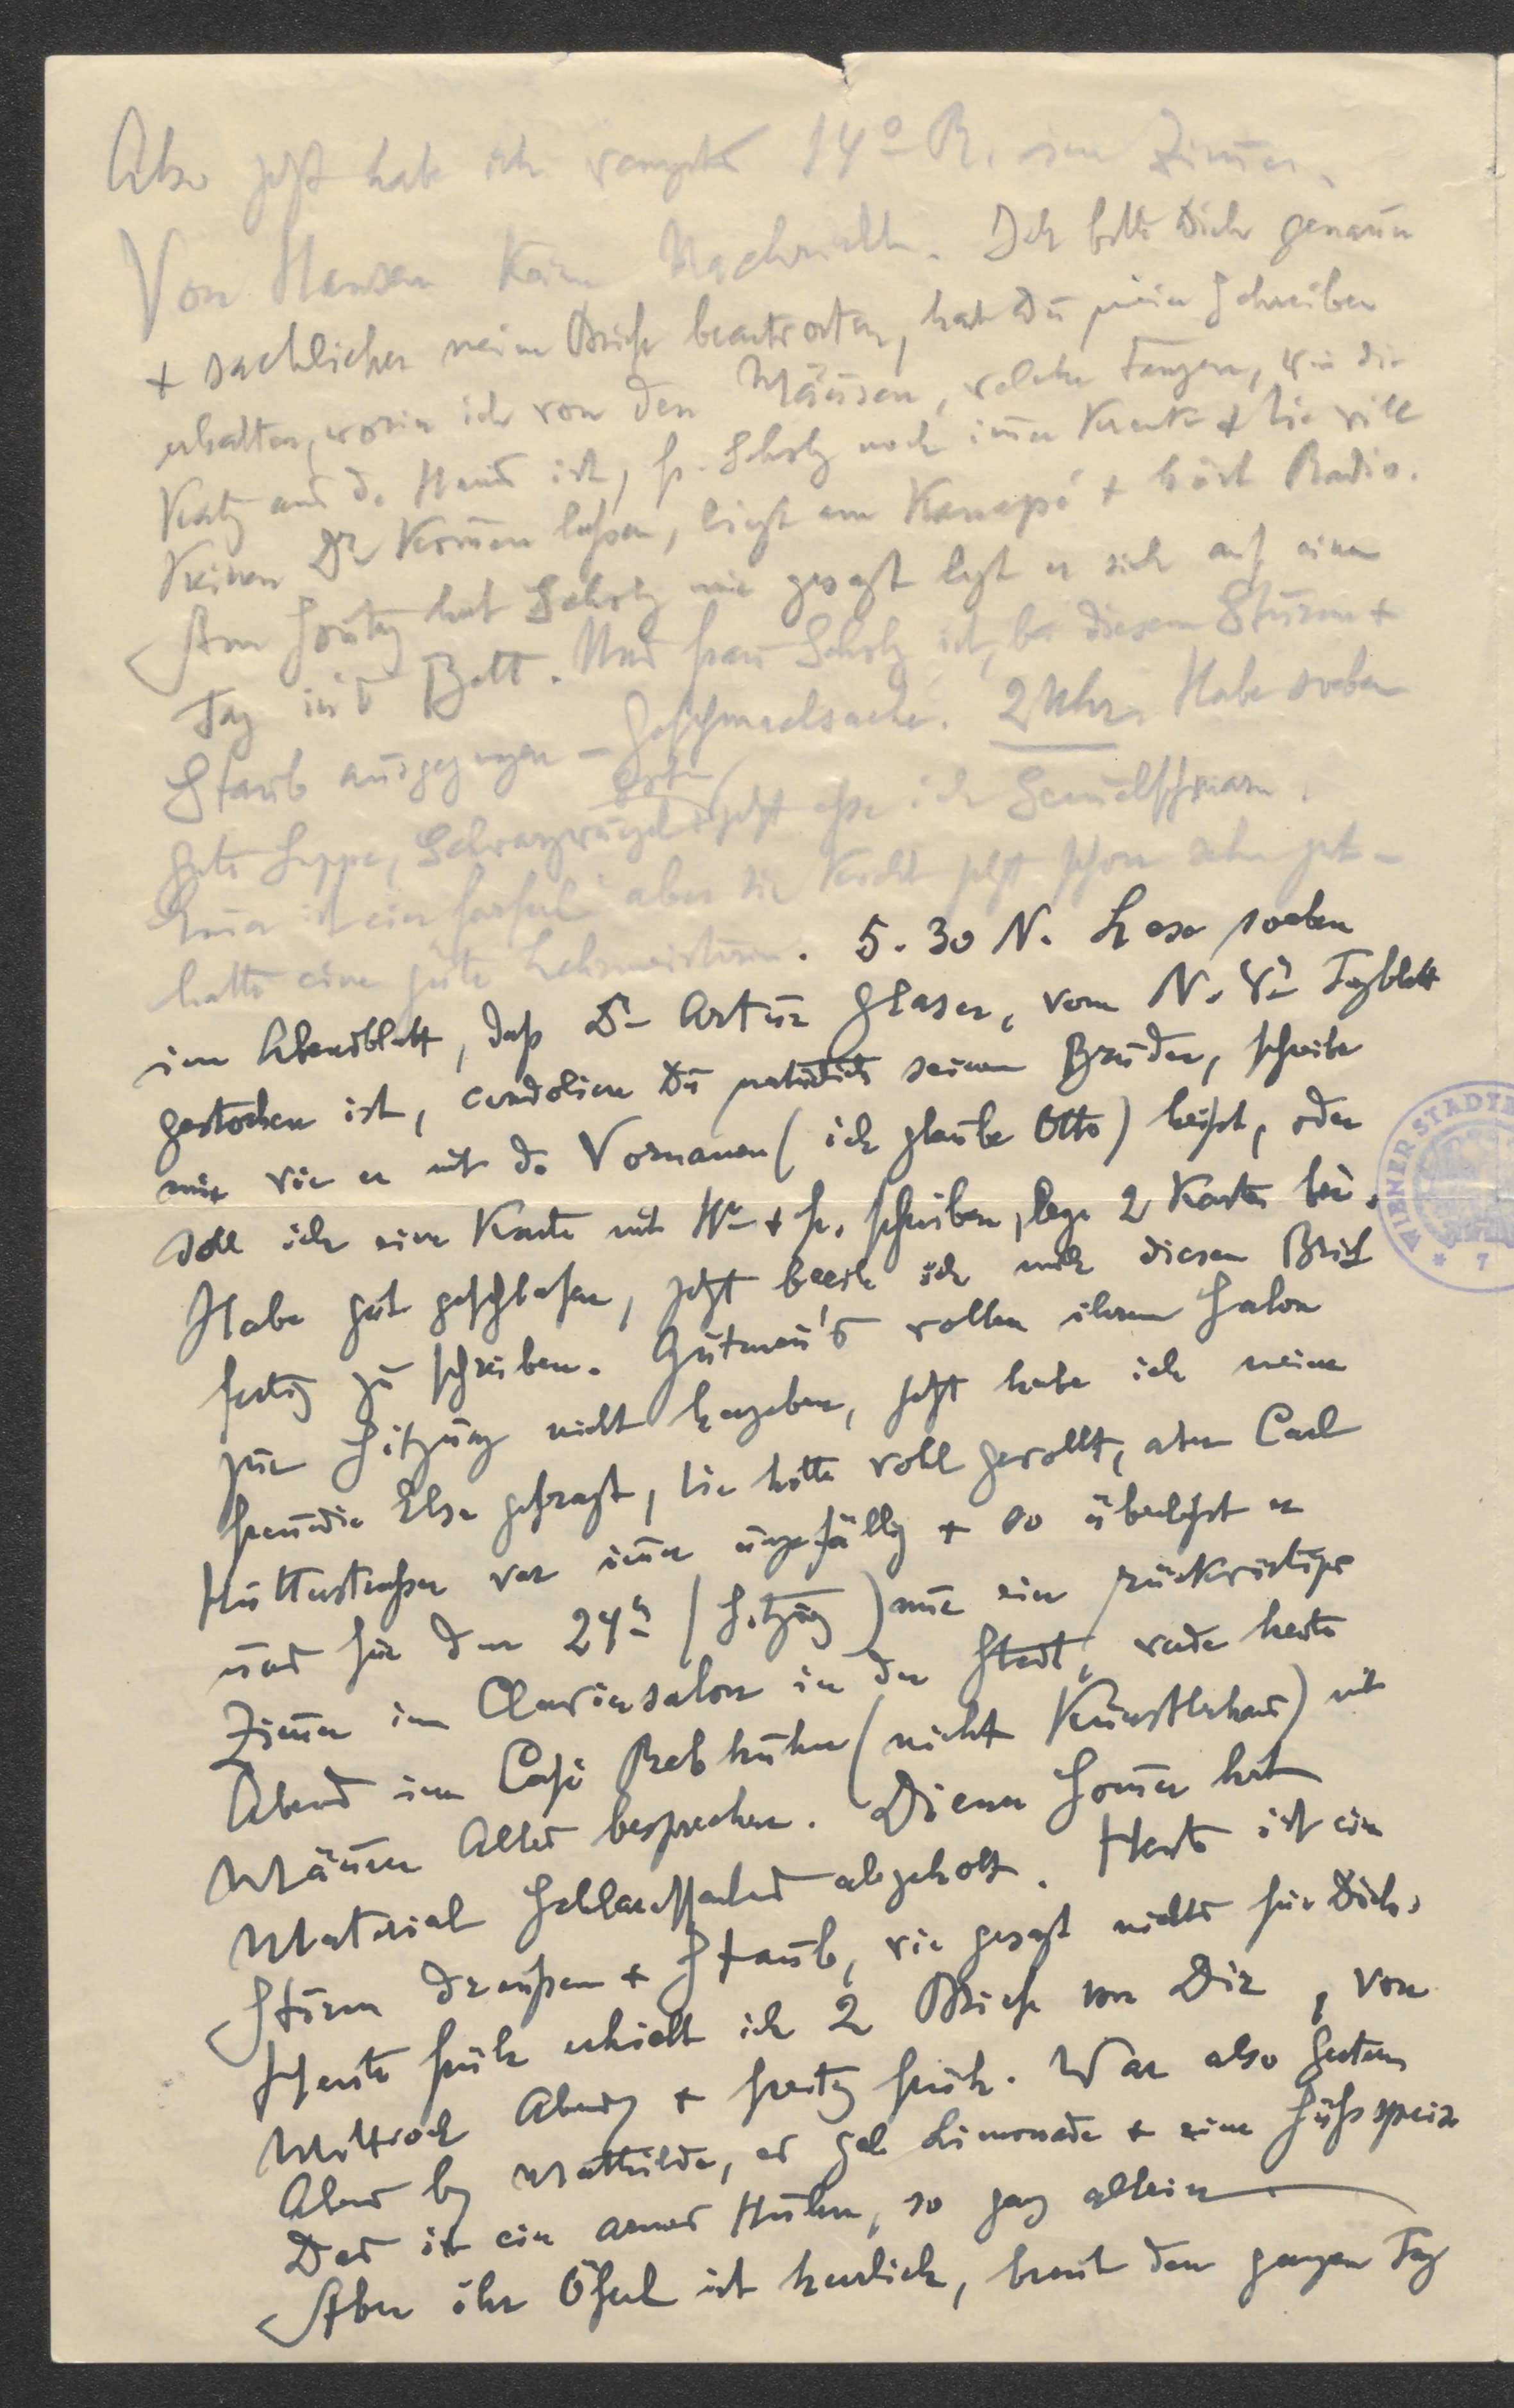 Also jetzt habe ich 14° R. im Zimmer.
Von Hansen keine Nachricht. Ich bitte Dich genauer
+ sachlicher meine Briefe beantworten, hast Du mein Schreiben
erhalten, worin ich von den Mäusen, welche Fangern, wie die
Katz aus d. Haus ist, Fr. Scholz noch immer krank + sie will
keinen Dr kommen lassen, liegt am Kanapé + hört Radio.
Am Sontag hat Scholz mir gesagt legt er sich auf einen
Tag in's Bett. Und Frau Scholz ist, bei diesem Sturm +
Staub ausgegangen – Geschmacksache. 2 Uhr. Habe soeben
gute Suppe, Schwarzwurzel jetzt esse ich Semmelschmarn.
ist ein aber sie kocht jetzt schon sehr gut –
hatte eine gute Lehrmeisterin. 5.30 N. Lese soeben
im Abendblatt, daß Dr Artur Glaser, vom N. Wr Tagblatt
gestorben ist, condoliere Du natürlich seinem Bruder, schreibe
mir wie er mit d. Vornamen (ich glaube Otto) heißt, oder
soll ich eine Karte mit Hr + Fr. schreiben, lege 2 Karten bei.
Habe gut geschlafen, jetzt beeile ich mich diesen Brief
fertig zu schreiben. Gutman's wollen ihren Salon
zur Sitzung nicht hergeben, jetzt habe ich meine
Freundin Else gefragt, sie hätte wohl gewollt, aber Carl
Hütterstrasser war immer ungefällig + so überläßt er
uns für den 24n (Sitzung) nur ein rückwärtiges
Zimmer im Claviersalon in der Stadt, werde heute
Abend im Café Rebhuhn (nicht Künstlerhaus) mit
Männer Alles besprechen. Diener Sommer hat
Material abgeholt. Heute ist ein
Sturm draußen + Staub, wie gesagt nichts für Dich.
Heute früh erhielt ich 2 Briefe von Dir, von
Mittwoch Abend + Freitag früh. War also gestern
Abend bei Mathilde, es gab Limonade + eine Süßspeise
Das ist ein armes Huhn, so ganz allein
Aber ihr Öferl ist herrlich, brennt den ganzen Tag
WIENER STADTB
* 7